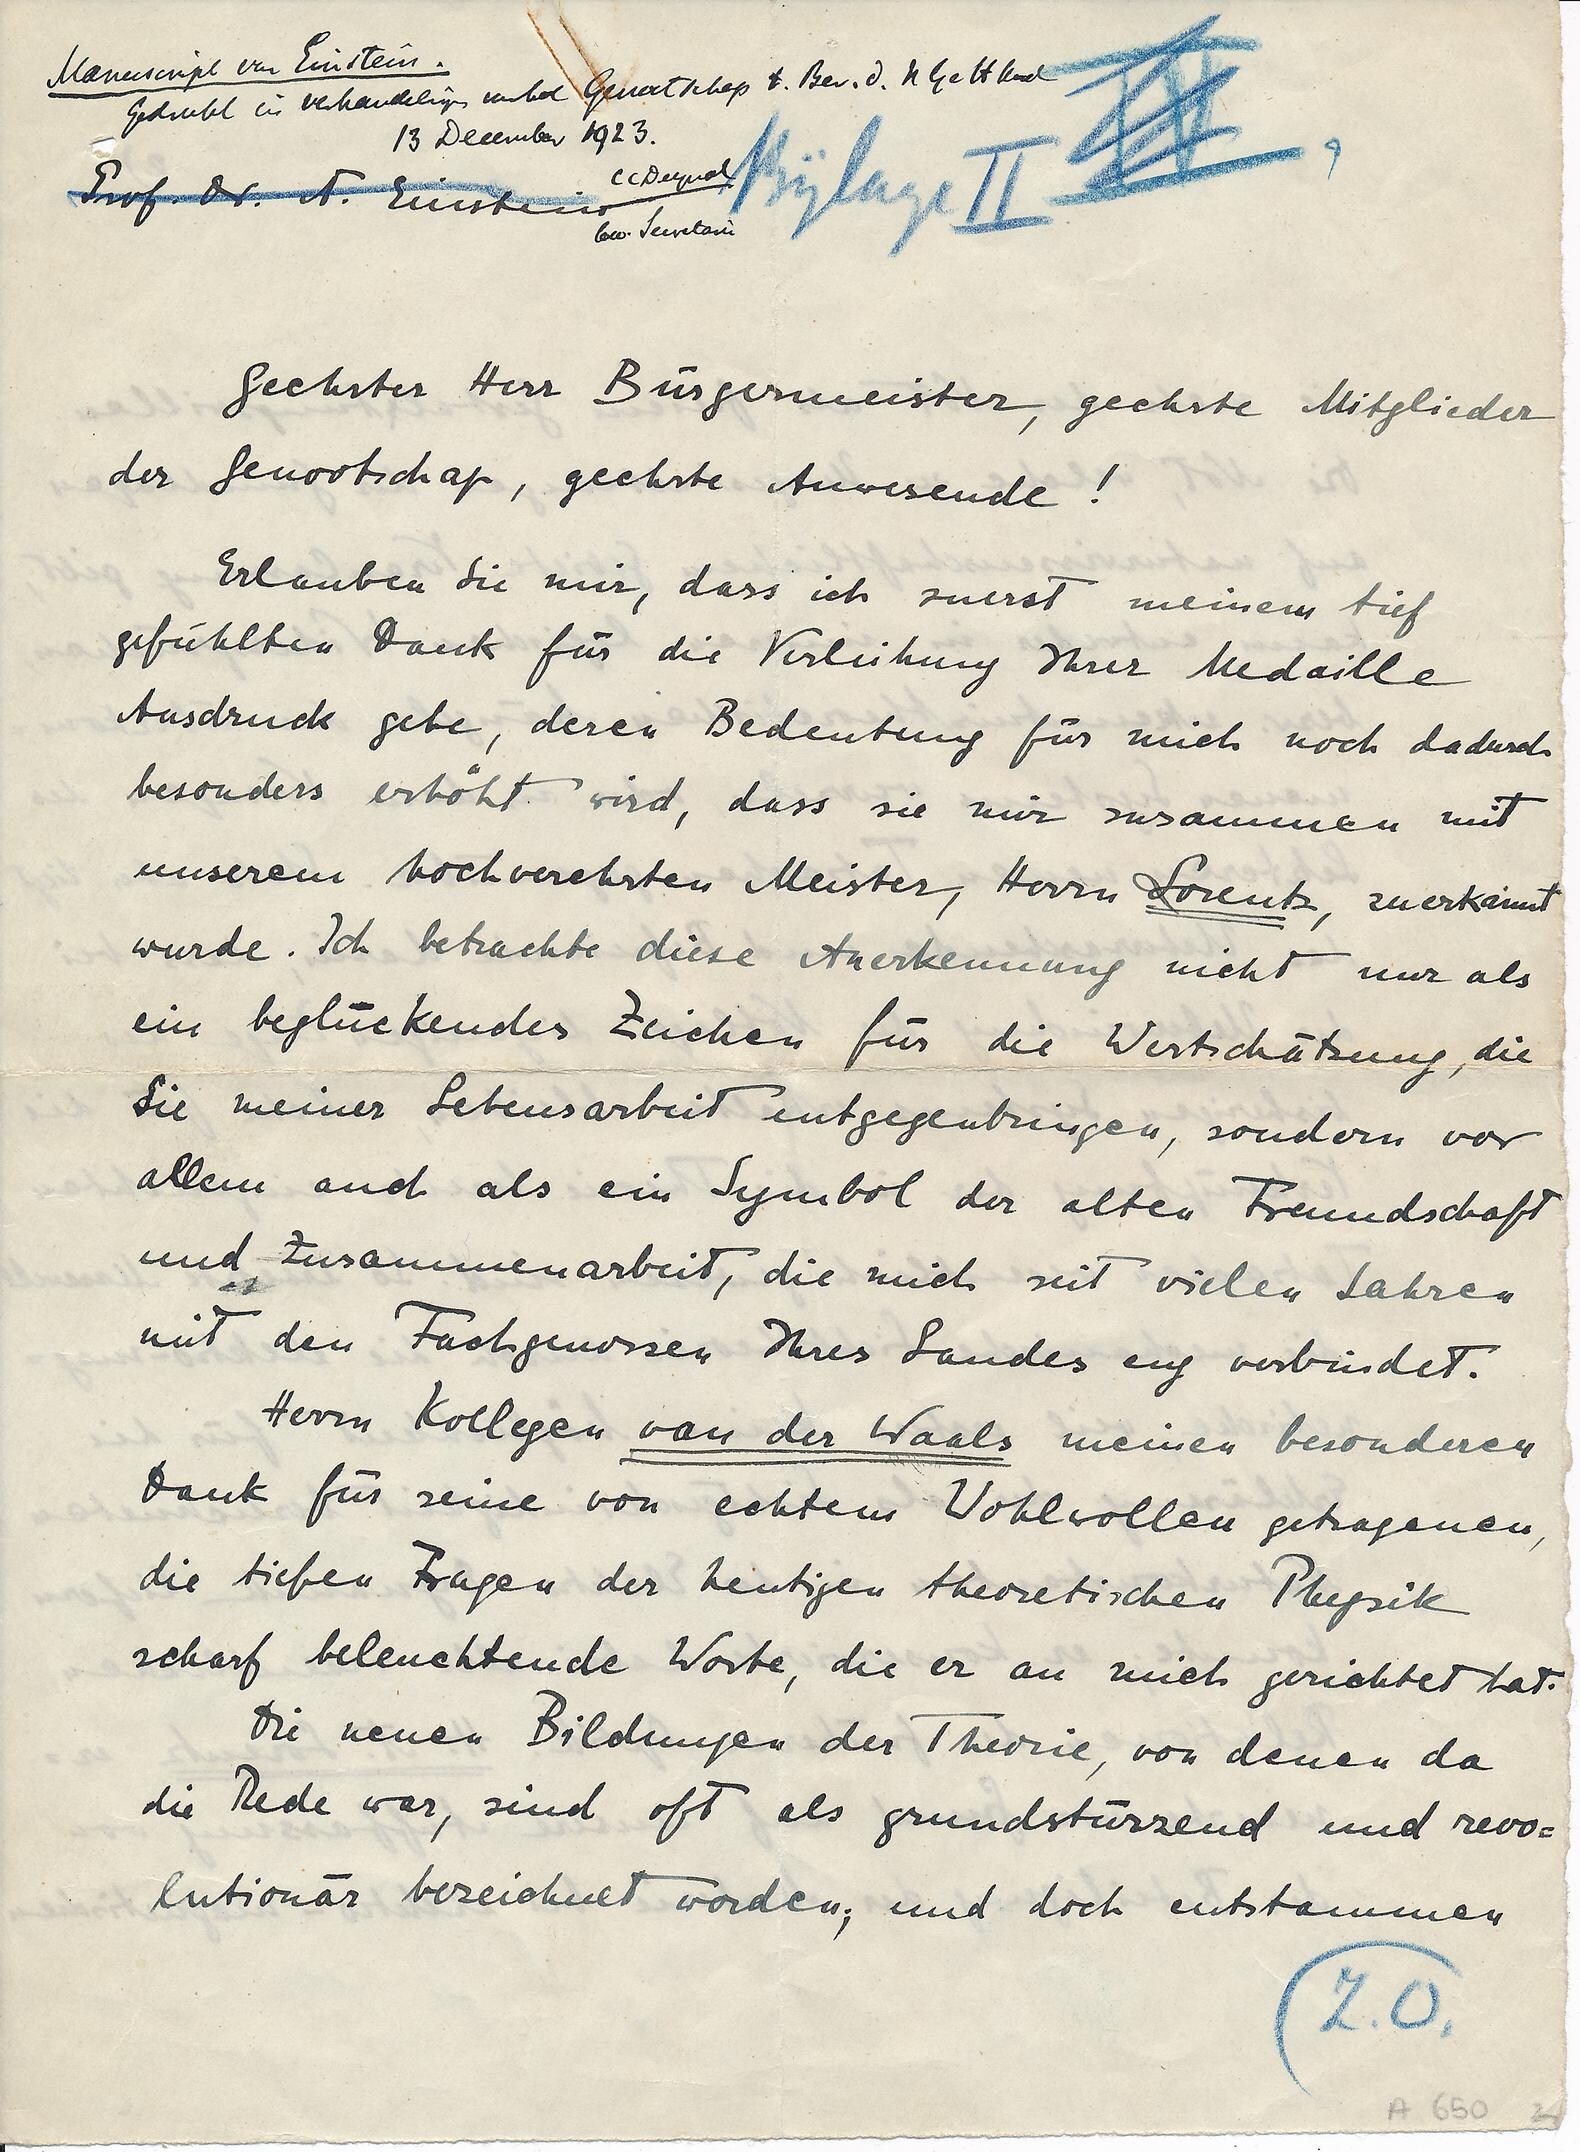 Manuscript van Einstein.
Gedrukt in verhandelingen van het Genootschap t. Bev. d. N
13 December 1923.
Prof. Dr. A. Einstein
Secretaris
Bijlage II
Geehrter Herr Bürgermeister, geehrte Mitglieder
der Genootschap, geehrte Anwesende!
Erlauben Sie mir, dass ich zuerst meinem tief
gefühlten Dank für die Verleihung Ihrer Medaille
Ausdruck gebe, deren Bedeutung für mich noch dadurch
besonders erhöht wird, dass sie mir zusammen mit
unserem hochverehrten Meister, Herrn Lorentz, zuerkannt
wurde. Ich betrachte diese Anerkennung nicht nur als
ein beglückendes Zeichen für die Wertschätzung, die
Sie meiner Lebensarbeit entgegenbringen, sondern vor
allem auch als ein Symbol der alten Freundschaft
und Zusammenarbeit, die mich seit vielen Jahren
mit den Fachgenossen Ihres Landes eng verbindet.
Herrn Kollegen van der Waals meinen besonderen
Dank für seine von echtem Wohlwollen getragenen,
die tiefen Fragen der heutigen theoretischen Physik
scharf beleuchtende Worte, die er an mich gerichtet hat.
Die neuen Bildungen der Theorie, von denen da
die Rede war, sind oft als grundstürzend und revo=
lutionär bezeichnet worden; und doch entstammen
Z.O.
A 650